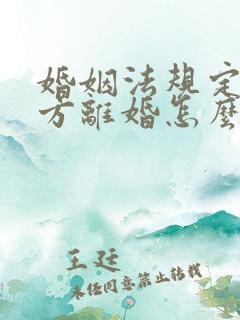 婚姻法規定
方離婚怎麼
王廷
未经同意禁止转载